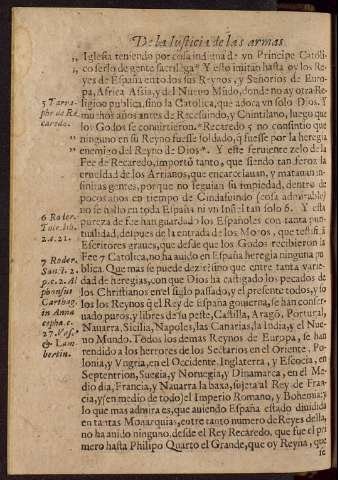 De la Iusticia de las armas
„ Iglesia teniendo por cosa indigna de vn Principe Catoli-
„ co serlo de gente sacrilega". Y esto imitan hasta oy los Re-
yes de España en todos sus Reynos, y Señorios de Euro-
pa, Africa Assia, y del Nueuo Mūdo, donde no ay otra Re-
5 Tarra-
ligion publica, sino la Catolica, que adora vn solo Dios. Y
pha de Re
muchos años antes de Recessuindo, y Chintilano, luego que
caredo.
los Godos se conuirtieron. "Recaredo 5 no consintio que
„ ninguno en su Reyno fuesse soldado, q fuesse por la heregia
„ enemigo del Reyno de Dios". Y este feruiente zelo de la
Fee de Recaredo, importò tanto, que siendo tan feroz la
crueldad de los Arrianos, que encarcelauan, y matauan in-
finitas gentes, porque no seguian su impiedad, dentro de
pocos años en tiempo de Cindasuindo (cosa admirable)
no se hallò en toda España ni vn Infiel tan solo 6. Y esta
6 Roder.
pureza de fee han guardado los Españoles con tanta pun-
Tole. lib.
tualidad, despues de la entrada de los Moros, que testifi ā
2. c. 21.
Escritores graues, que desde que los Godos recibieron la
Fee 7 Catolica, no ha auido en España heregia ninguna pu
7 Roder.
blica. Que mas se puede dezir, sino que entre tanta varie-
Sanct. 2.
dad de heregias, con que Dios ha castigado los pecados de
p. c. 2. Al
los Christianos en el siglo passado, y el presente todos, y so
phonsus
los los Reynos q̄ el Rey de España gouierna, se han conser-
Carthag.
uado puros, y libres desta peste, Castilla, Aragõ, Portugal,
in Anna
Nauarra, Sicilia, Napoles, las Canarias, la India, y el Nue-
cepha. c.
uo Mundo. Todos los demas Reynos de Europa, se han
27. Vas.
rendido a los herrores de los Sectarios en el Oriente, Po-
& Lam-
lonia, y Vngria, en el Occidente, Inglaterra, y Escocia, en
bertin.
Septentrion, Suecia, y Noruegia, y Dinamarca, en el Me-
dio dia, Francia, y Nauarra la baxa, sujeta al Rey de Fran-
cia, y (en medio de todo) el Imperio Romano, y Bohemia: y
lo que mas admira es, que auiendo España estado diuidida
en tantas Monarquias, entre tanto numero de Reyes della,
no ha auido ninguno, desde el Rey Recaredo, que fue el pri
mero hasta Philipo Quarto el Grande, que oy Reyna, que
se